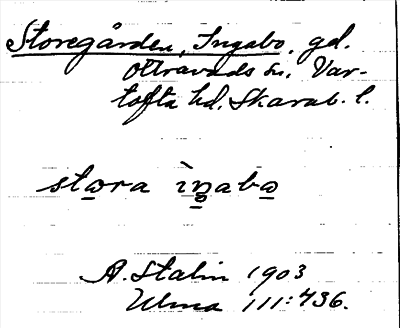 Storegården, Ingabo, gd.
Ottravads sn. Var-
tofta hd. Skarab. l.
stora ìŋabo
A. Stalin 1903
Ulma 111:436.